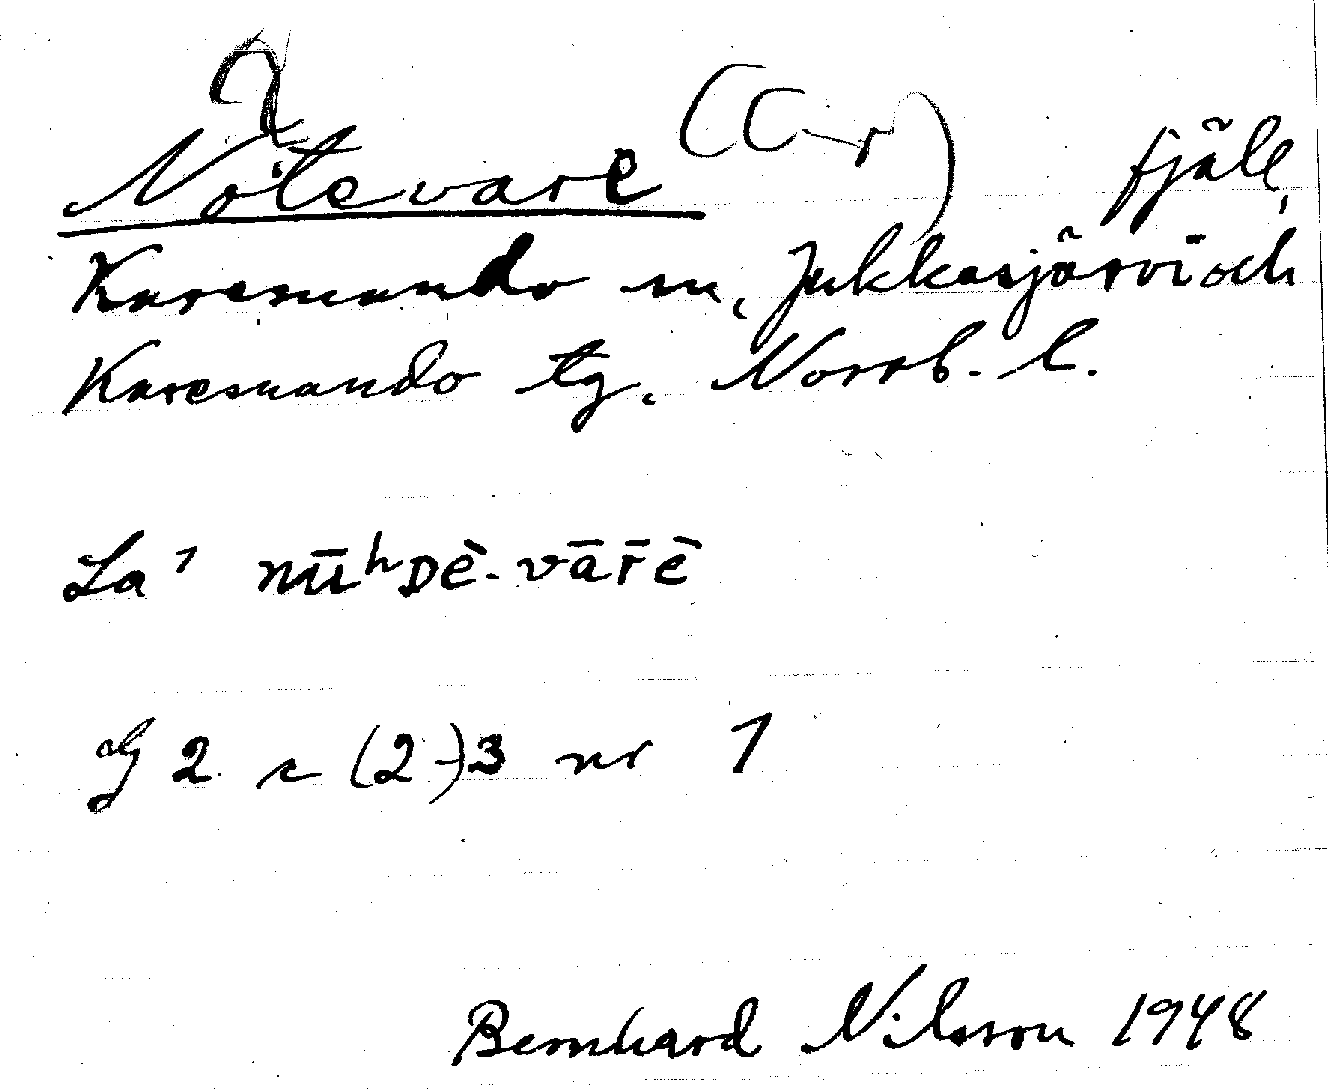 Nötevare fjäll,
Karesuando sn, Jukkasjärvi och
Karesuando tg. Norrb. l.
La' nūʰᴅè-vārè
2 c (2-)3 nr 1
Bernhard Nilsson 1948